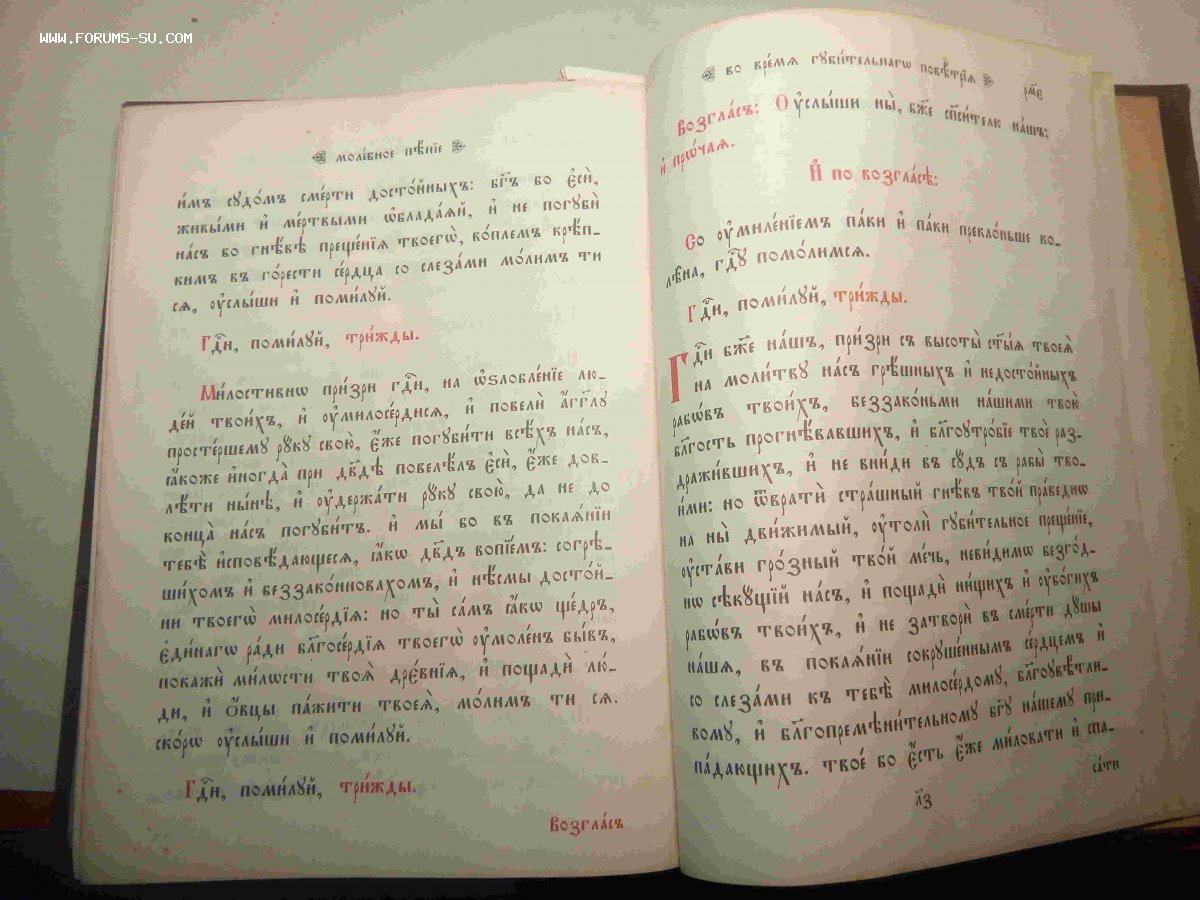 WWW.FORUMS-SU.COM
моле́бное пѣ́нїе
и́мъ судо́мъ сме́рти досто́йныхъ: бг҃ъ бо є҆сѝ,
живы́ми и҆ ме́ртвыми ѡ҆блада́ѧй, и҆ не погубѝ
на́съ во гнѣ́вѣ преще́нїѧ твоегѡ̀, во́племъ крѣ́п-
кимъ въ го́рести се́рдца со слеза́ми мо́лимъ ти
сѧ, ᲂу҆слы́ши и҆ поми́луй.
Гдⷭ҇и, поми́луй, три́жды.
Ми́лостивнѡ при́зри гдⷭ҇и, на ѡ҆ѕлобле́нїе лю-
де́й твои́хъ, и҆ ᲂу҆милосе́рдисѧ, и҆ повелѝ а҆́гг҃лу
просте́ршему рꙋ́ку свою̀, є҆́же погуби́ти всѣ́хъ на́съ,
ꙗ҆́коже и҆ногда̀ при дв҃дѣ повелѣ́лъ є҆сѝ, є҆́же дов-
лѣ́ти ны́нѣ, и҆ ᲂу҆держа́ти рꙋ́ку свою̀, да не до
конца̀ на́съ погуби́тъ. и҆ мы́ бо въ покаѧ́нїи
тебѣ̀ и҆сповѣ́дающесѧ, ꙗ҆́кѡ дв҃дъ вопїе́мъ: согрѣ-
ши́хомъ и҆ беззако́нновахомъ, и҆ нѣ́смы досто́й-
ни твоегѡ̀ милосе́рдїѧ: но ты̀ са́мъ ꙗ҆́кѡ ще́дръ,
є҆ди́нагѡ ра́ди бл҃госе́рдїѧ твоегѡ̀ ᲂу҆моле́нъ бы́въ,
покажѝ ми́лѡсти твоѧ̑ дрє́внїѧ, и҆ пощадѝ лю́-
ди, и҆ ѻ҆́вцы па́жити твоеѧ̀, мо́лим ти сѧ.
ско́рѡ ᲂу҆слы́ши и҆ поми́луй.
Гдⷭ҇и, поми́луй, три́жды.
Возгла́съ
во вре́мѧ губи́тельнагѡ повѣ́трїѧ
рм҃є
Возгла́съ: Оу҆слы́ши ны̀, бж҃е сп҃си́телю на́шъ:
и҆ прѡ́чаѧ.
И҆ по возгла́сѣ:
Со ᲂу҆миле́нїемъ па́ки и҆ па́ки прекло́ньше ко-
лѣ̑на, гдⷭ҇у помо́лимсѧ.
Гдⷭ҇и, поми́луй, три́жды.
Гдⷭ҇и бж҃е на́шъ, при́зри съ высоты̀ ст҃ы́ѧ твоеѧ̀
на моли́тву на́съ грѣ́шныхъ и҆ недосто́йныхъ
рабѡ́въ твои́хъ, беззако́ньми на́шими твою̀
бл҃гость прогнѣ́вавшихъ, и҆ бл҃гоутро́бїе твоѐ раз-
дражи́вшихъ, и҆ не вни́ди въ су́дъ съ рабы̀ тво-
и́ми: но ѿвратѝ стра́шный гнѣ́въ тво́й пра́веднѡ
на ны̀ дви́жимый, ᲂу҆толѝ губи́тельное преще́нїе,
ᲂу҆ста́ви гро́зный тво́й ме́чь, неви́димѡ безго́д-
нѡ сѣку́щїй на́съ, и҆ пощадѝ ни́щихъ и҆ ᲂу҆бо́гихъ
рабѡ́въ твои́хъ, и҆ не затворѝ въ сме́рти ду́шы
на́шѧ, въ покаѧ́нїи сокруше́ннымъ се́рдцемъ и҆
со слеза́ми къ тебѣ̀ милосе́рдому, бл҃гоувѣ́тли-
вому, и҆ бл҃гопремѣни́тельному бг҃у на́шему при-
па́дающихъ. твое́ бо є҆́сть є҆́же ми́ловати и҆ спа-
са́ти
л҃з